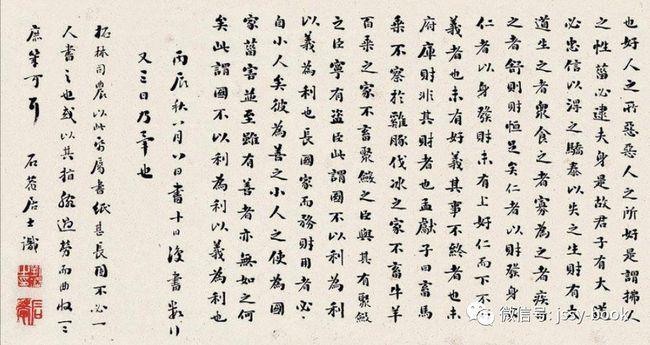 也好人之所惡惡人之所好是謂拂人
之性菑必逮夫身是故君子有大道
必忠信以得之驕泰以失之生財有大
道生之者眾食之者寡為之者疾用
之者舒則財恒足矣仁者以財發身不
仁者以身發財未有上好仁而下不好
義者也未有好義其事不終者也未有
府庫財非其財者也孟獻子曰畜馬
乘不察於雞豚伐冰之家不畜牛羊
百乘之家不畜聚斂之臣與其有聚斂
之臣寧有盜臣此謂國不以利為利
以義為利也長國家而務財用者必
自小人矣彼為善之小人之使為國
家菑害並至雖有善者亦無如之何
矣此謂國不以利為利以義為利也
丙辰秋八月八日書十日後書數行
又三日乃畢也
拓林司農以此家屬書紙甚長固不必一
人書之也或以其指腕過勞而曲收之
庶幾可耳 石菴居士識
微信号: jssy-book